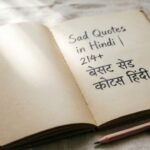 Sad Quotes
in Hindi |
214+
बेसट सेड
कोटस हिंदी